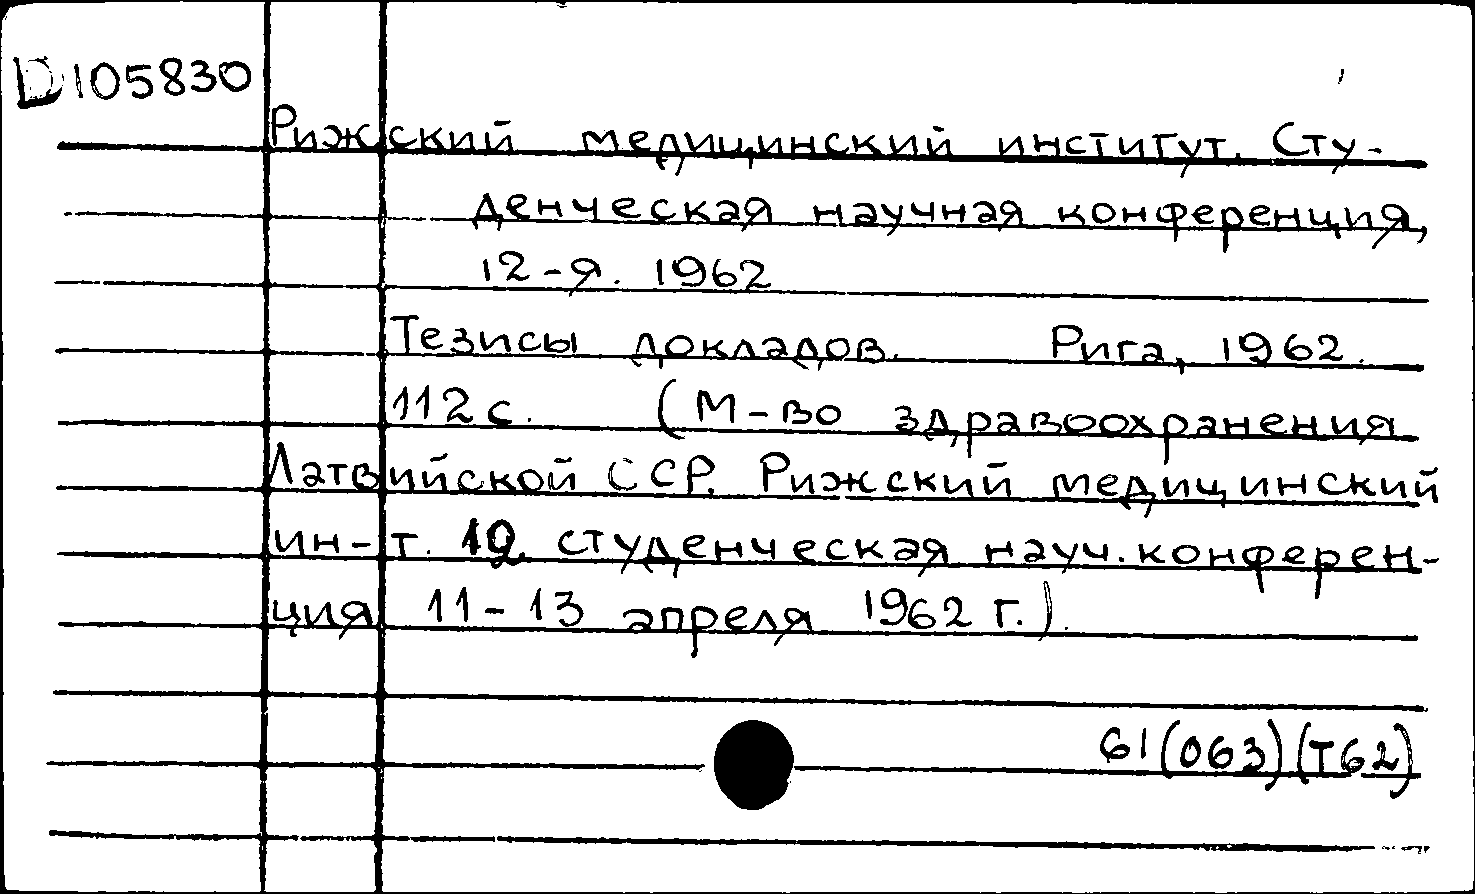 D105830
Рижский медицинский институт. Сту-
денческая научная конференция,
12-я. 1962
Тезисы докладов. Рига, 1962.
112 с. (М-во здравоохранения
Латвийской ССР. Рижский медицинский
ин-т. 12. студенческая науч. конферен-
ция 11-13 апреля 1962 г.).
61(063)(Т62)